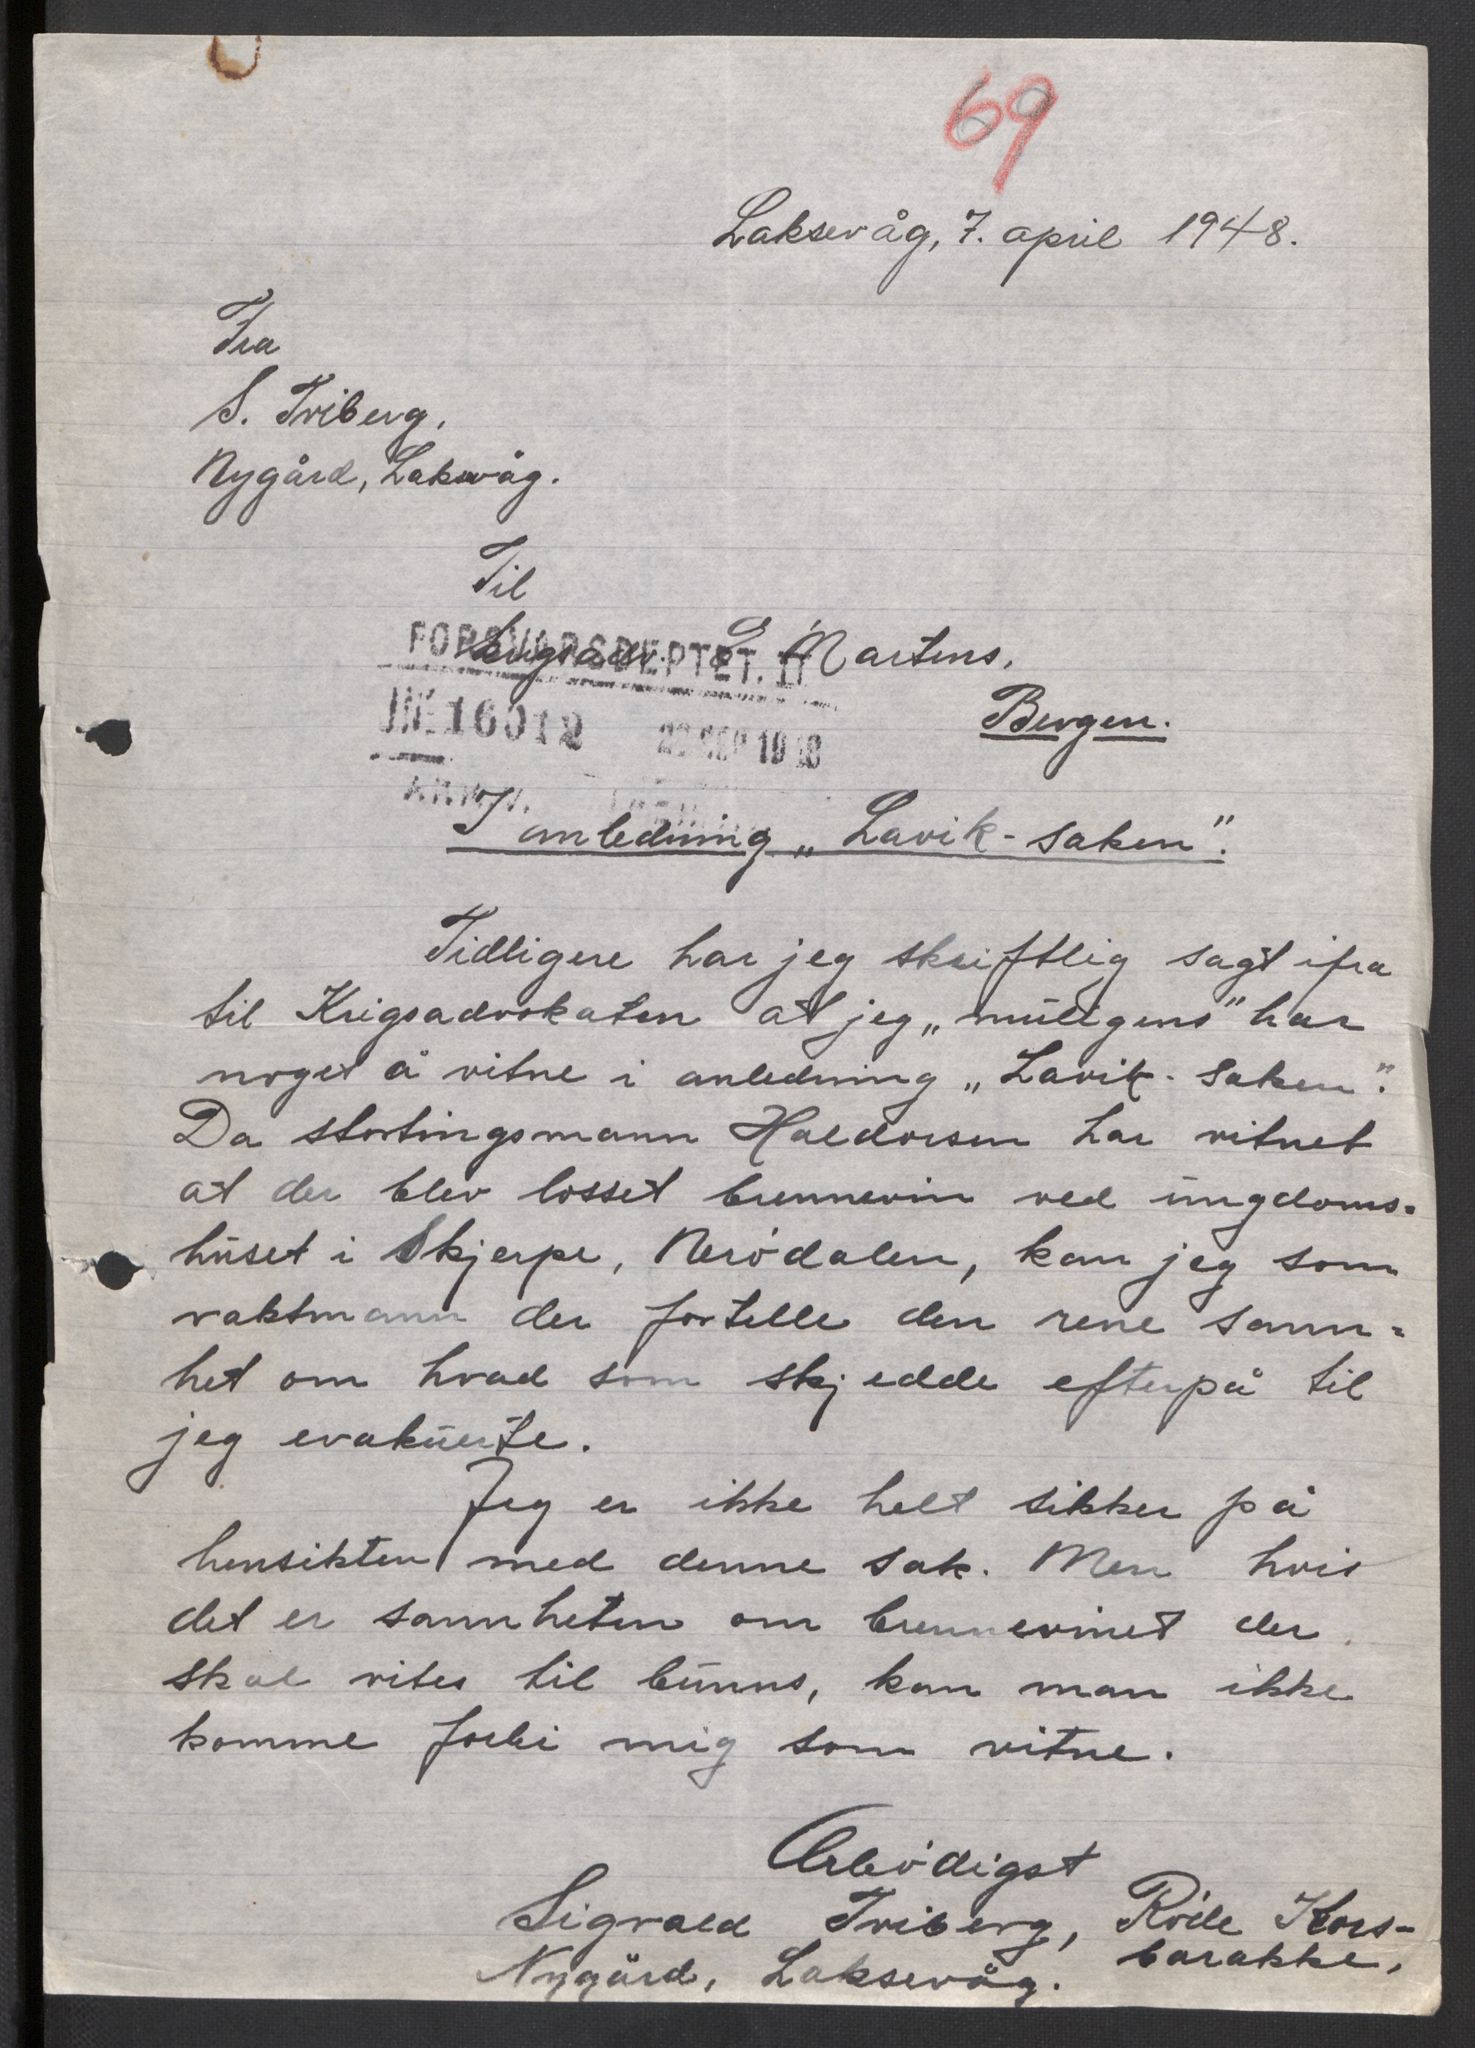 69
Laksevåg, 7. april 1948.
Fra
S. Friberg,
Nygård, Laksevåg.
Til
Martens,
FORSVARSDEPTET. II
JNE 16012 22 SEP 1948
Bergen.
ARKIV.
I anledning „Lavik-saken".
Tidligere har jeg skriftlig sagt ifra
til Krigsadvokaten at jeg „muligens" har
noget å vitne i anledning „Lavik-saken".
Da stortingsmann Haldorsen har vitnet
at der blev losset brennevin ved ungdoms-
huset i Skjerpe, Nerödalen, kan jeg som
vaktmann der fortelle den rene sann-
het om hvad som skjedde efterpå til
jeg evakuerte.
Jeg er ikke helt sikker på
hensikten med denne sak. Men hvis
det er sannheten om brennevinet der
skal vites til bunns, kan man ikke
komme forbi mig som vitne.
Ærbödigst
Sigvald Friberg, Röde Kors-
barakke,
Nygård, Laksevåg.